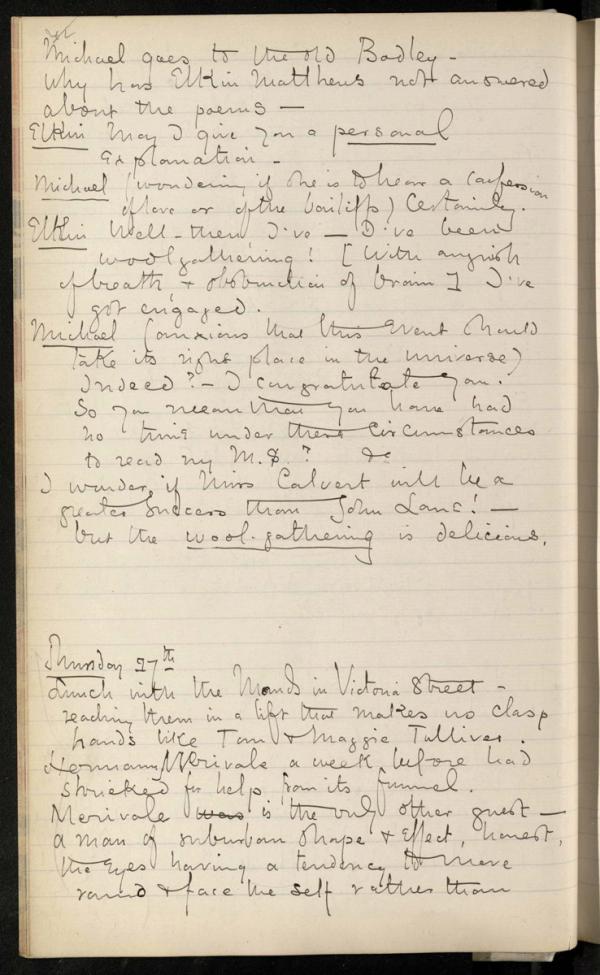 Michael goes to the old Bodley -
Why has Elkin Matthews not answered
about the poems —
Elkin May I give you a personal
Explanation -
Michael (wondering if she is to hear a confession
of love or of the bailiffs) Certainly.
Elkin Well - then I've — I've been
woolgathering! [With anguish
of breath & obstruction of brain] I've
got engaged.
Michael (anxious that this event should
take its right place in the universe)
Indeed? - I congratulate you.
So you mean that you have had
no time under these circumstances
to read my M.S.? &c
I wonder if Miss Calvert will be a
greater success than John Lane! —
but the wool-gathering is delicious.
Thursday 27th
Lunch with the Monds in Victoria Street -
reaching them in a lift that makes us clasp
hands like Tom & Maggie Tulliver.
Hermann Merivale a week before had
shrieked for help from its funnel.
Merivale was is the only other guest —
a man of suburban shape & effect, honest,
the eyes having a tendency to move
round & face the self rather than